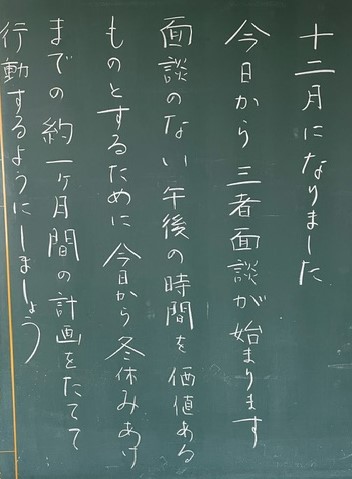 十二月になりました
今日から三者面談が始まります
面談のない午後の時間を価値ある
ものとするために今日から冬休みあけ
までの約一ヶ月間の計画をたてて
行動するようにしましょう